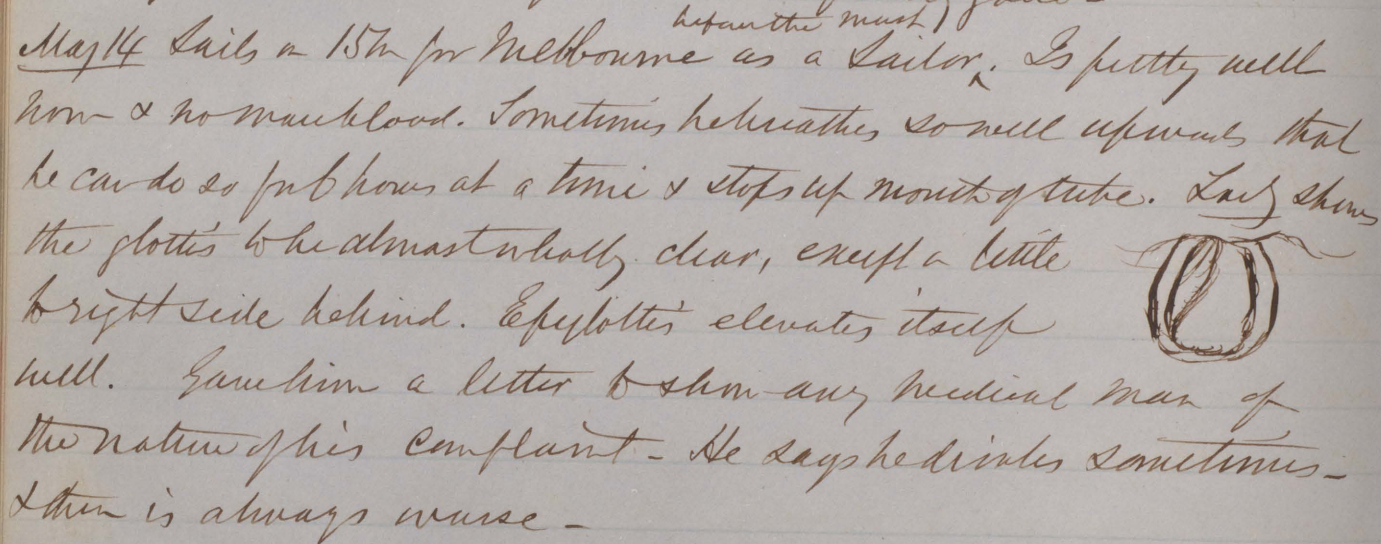 before the mast)
May 14 Sails on 15th for Melbourne as a Sailor ^. Is pretty well
now & no more blood. Sometimes he breathes so well upwards that
he can do so for 6 hours at a time & stops up mouth of tube. Lary shows
the glottis to be almost wholly clear, except a little
to right side behind. Epiglottis elevates itself
well. Gave him a letter to show any medical man of
the nature of his complaint - He says he drinks sometimes -
& then is always worse -